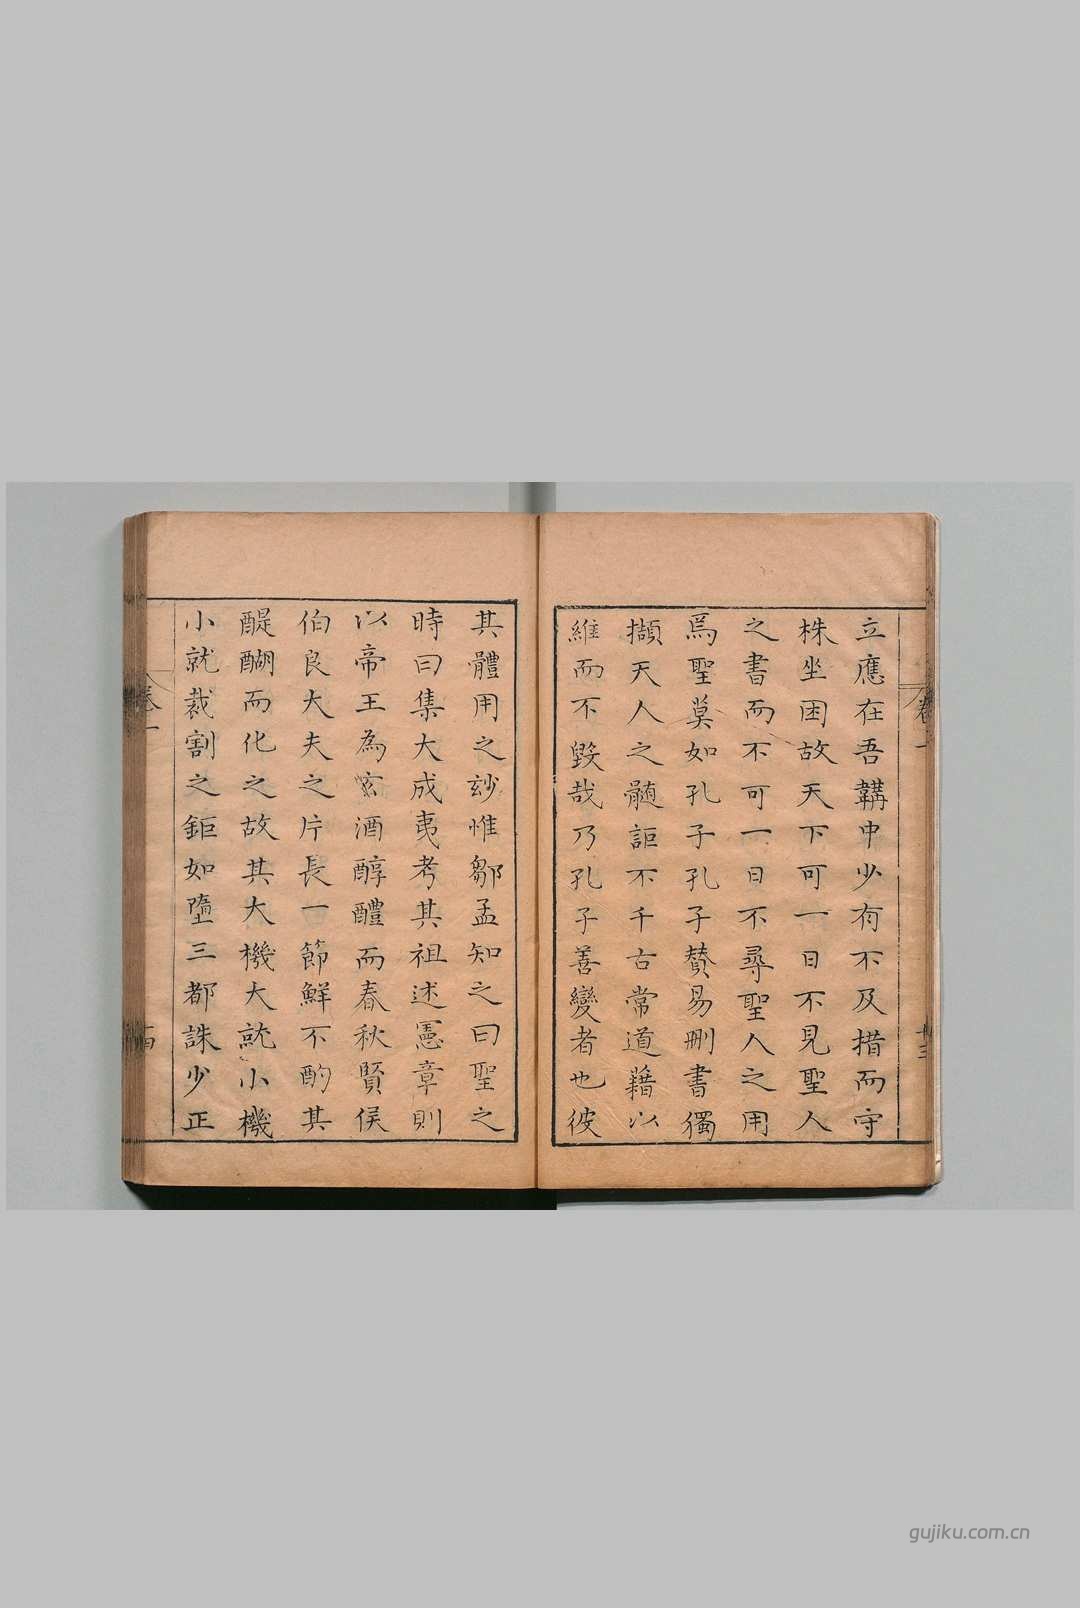 立應在吾韝中少有不及措而守
株坐困故天下可一日不見聖人
之書而不可一日不尋聖人之用
爲聖莫如孔子孔子賛易刪書獨
擷天人之髄詎不千古常道藉以
維而不毀哉乃孔子善變者也彼
其體用之玅惟鄒孟知之曰聖之
時曰集大成夷考其祖述憲章則
以帝王為玄酒醇醴而春秋賢侯
伯良大夫之片長一節鮮不酌其
醍醐而化之故其大機大就小機
小就裁割之鉅如墮三都誅少正
卷一
十三
卷一
十四
gujiku.com.cn